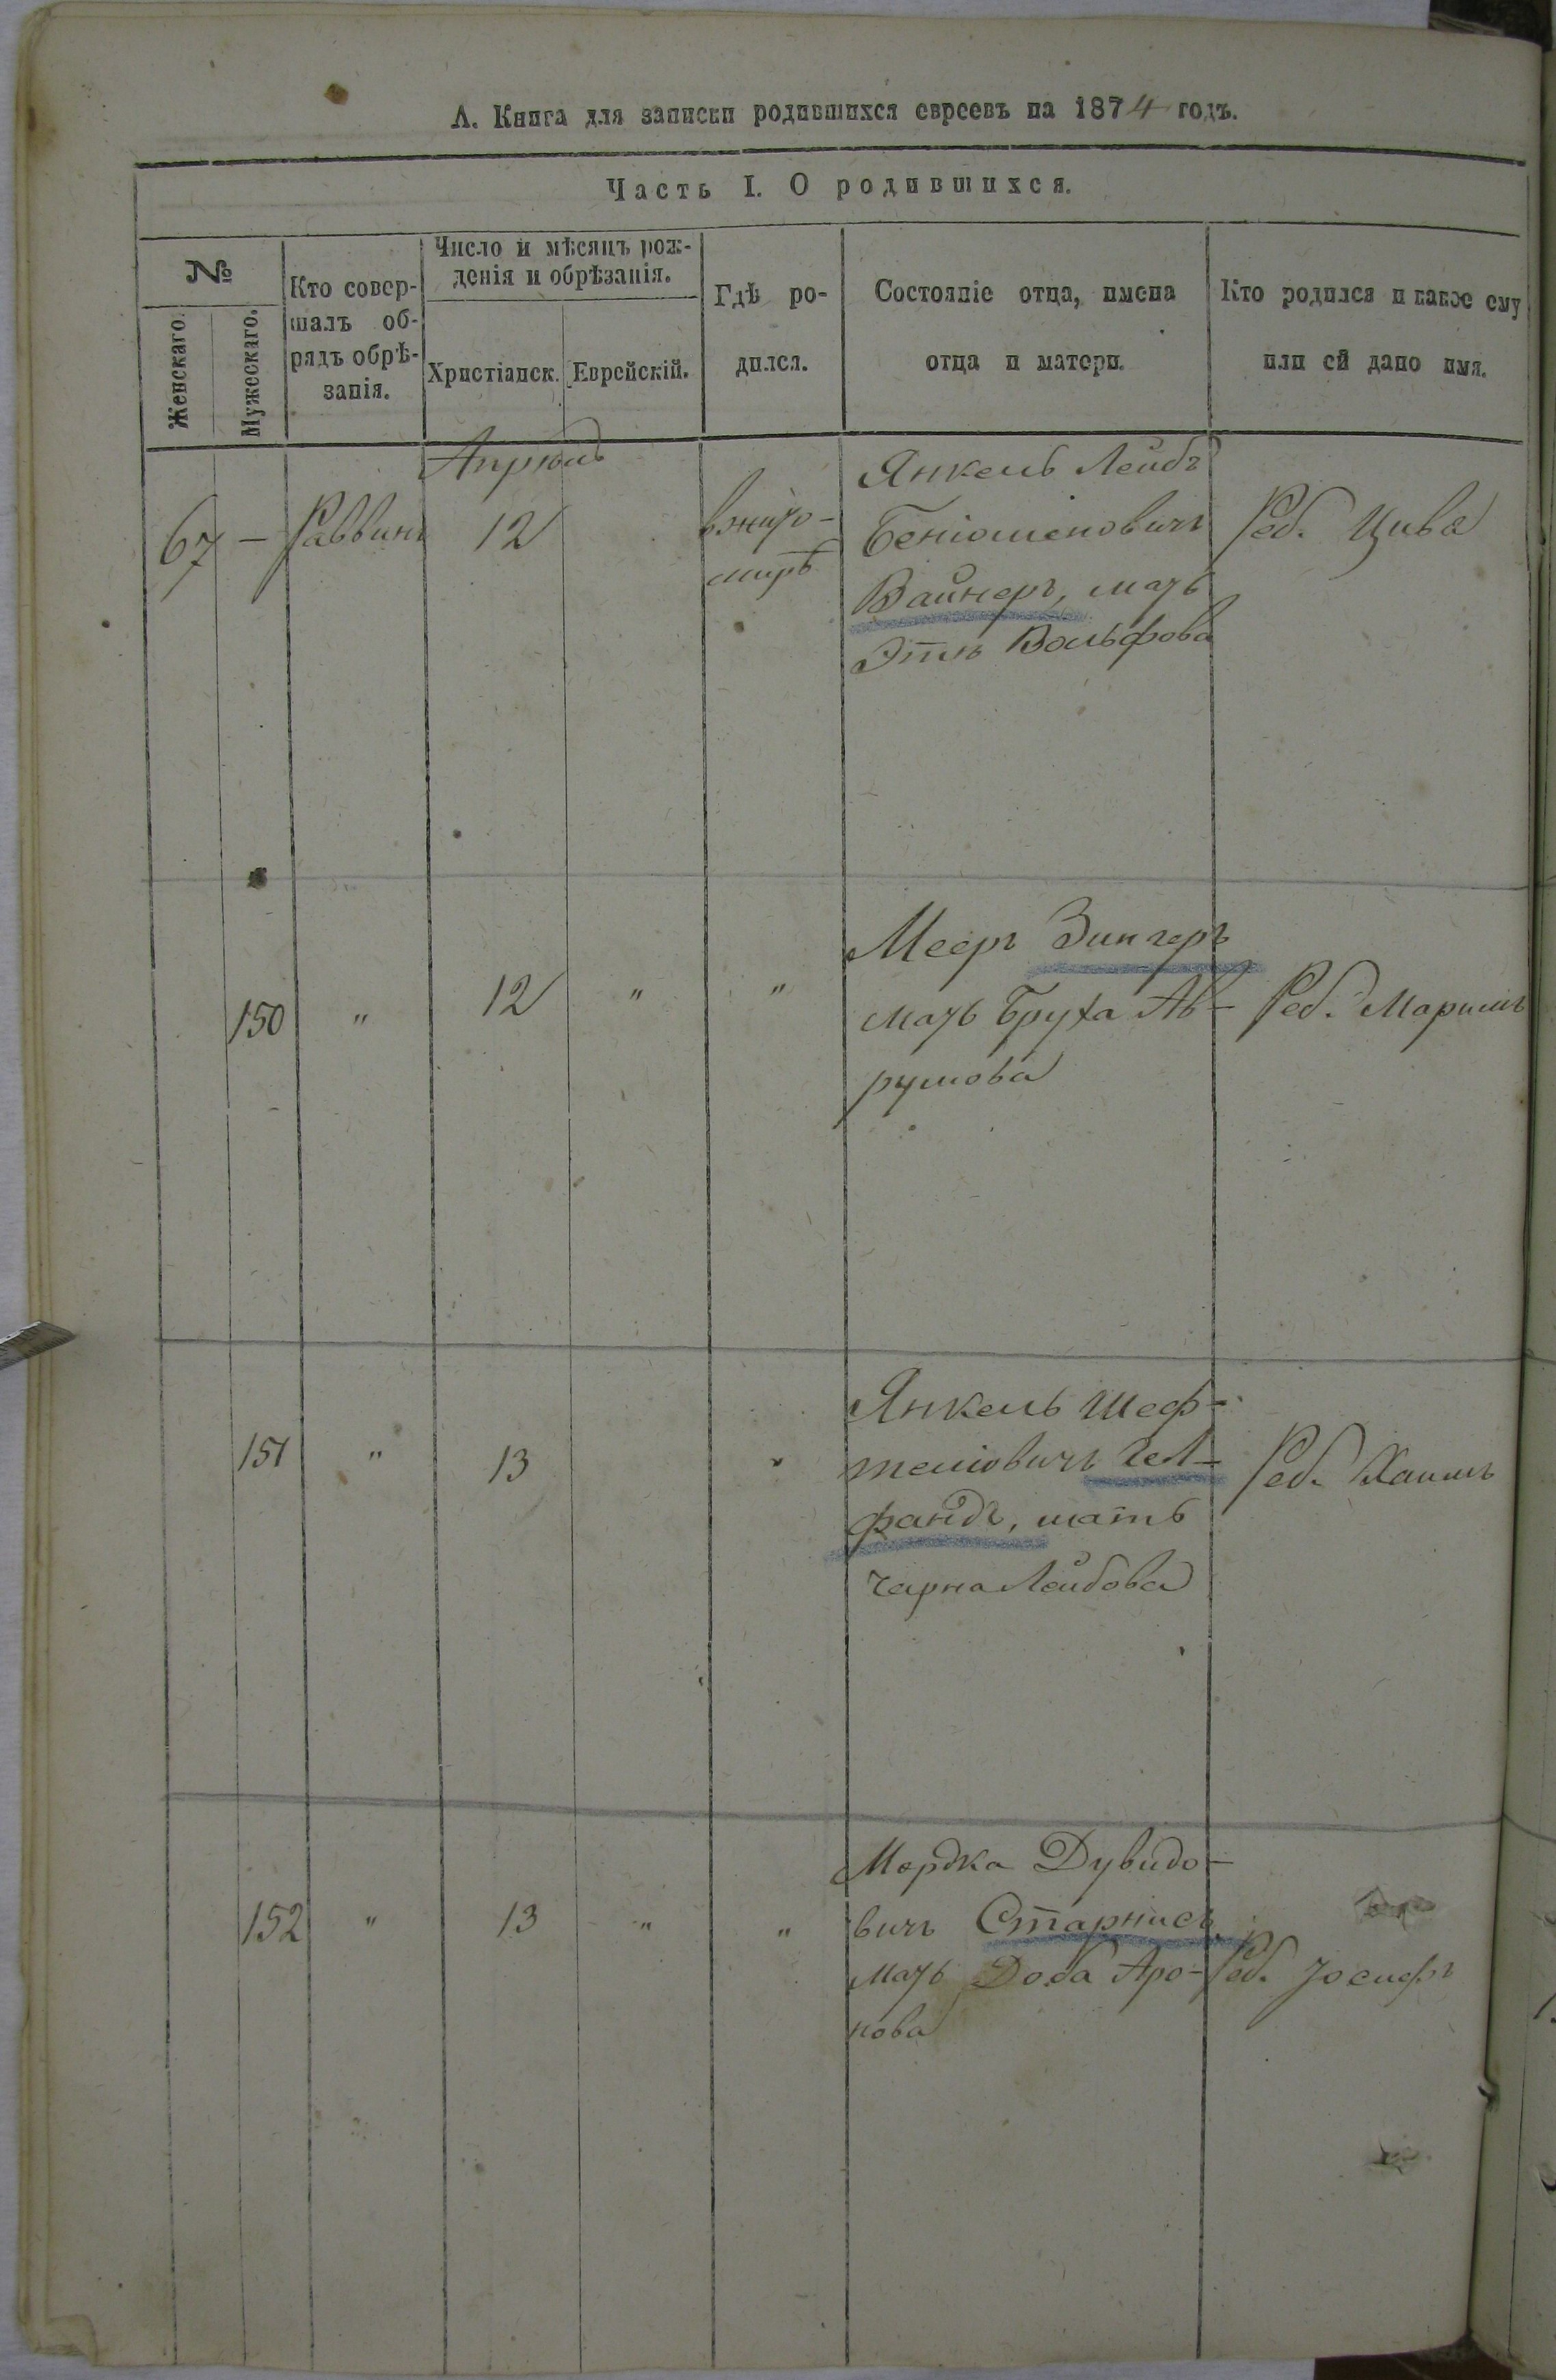 А. Книга для записки родившихся евреевъ на 1874 годъ.
Часть I. О родившихся.
№
Женскаго.
Мужескаго.
Кто совер-
шалъ об-
рядъ обрѣ-
занія.
Число и мѣсяцъ рож-
денія и обрѣзанія.
Христіанск.
Еврейскій.
Гдѣ ро-
дился.
Состояніе отца, имена
отца и матери.
Кто родился и какое ему
или ей дано имя.
Апрель
67 — Раввинъ 12
в жито-
мирѣ
Янкель Лейбъ
Беніоменовичъ
Вайнеръ, мать
Этль Вольфова
Реб. Цива
150 " 12 " "
Мееръ Зингеръ
мать Бруха Ав-
румова
Реб.
151 " 13 "
Янкель Шеф-
теліовичъ Гел-
фандъ, мать
Чарна Лейбова
Реб. Хаимъ
152 " 13 " "
Мордка Дувидо-
вичъ Старнисъ,
мать Доба Аро-
нова
Реб. Іосифъ